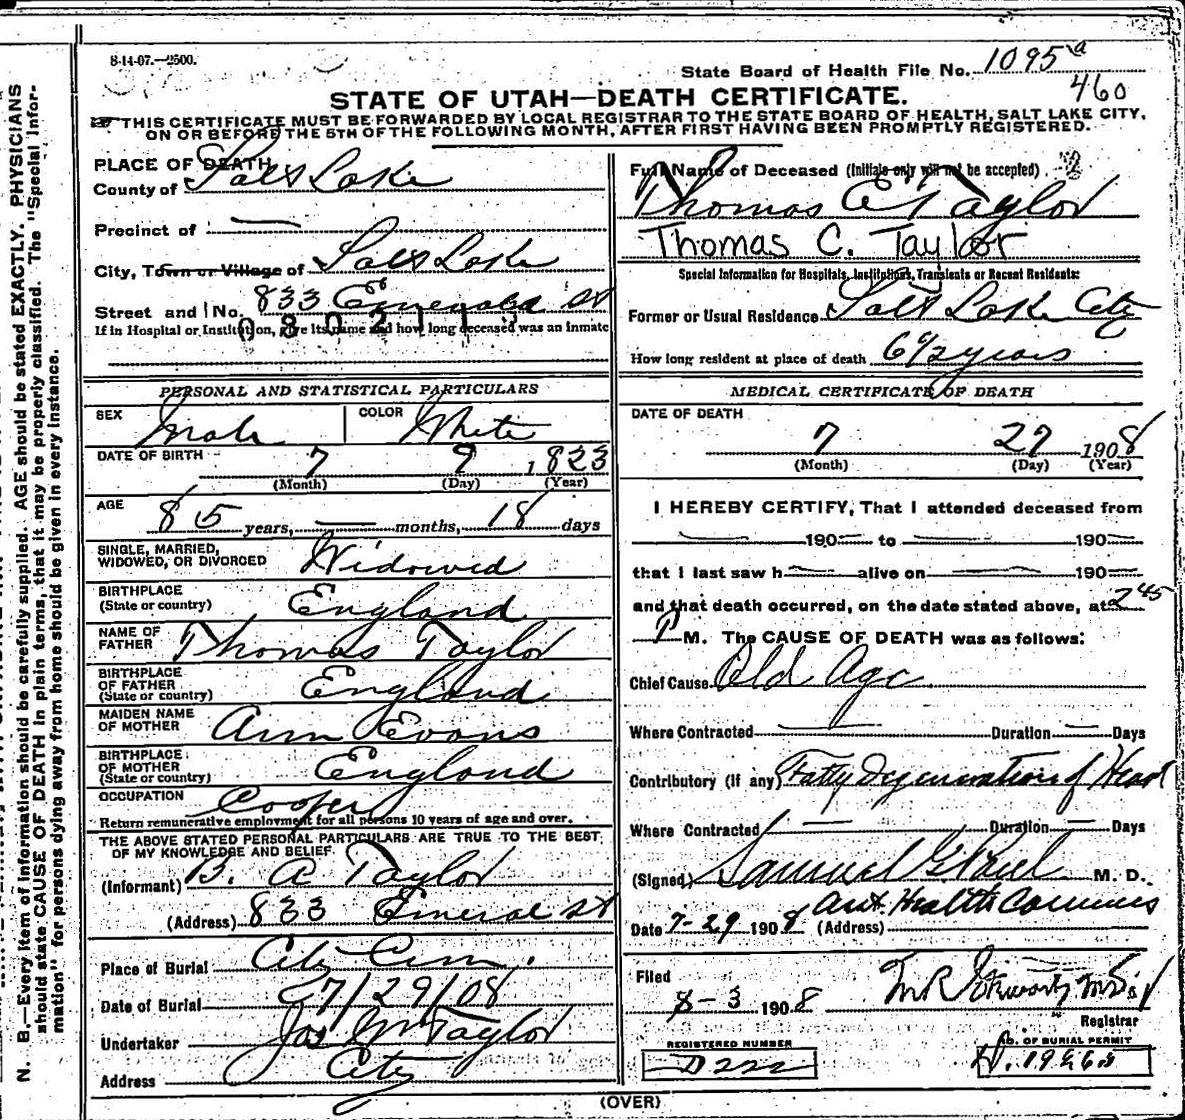 8-14-07.—2500.
State Board of Health File No. 1095 a
460
STATE OF UTAH—DEATH CERTIFICATE.
THIS CERTIFICATE MUST BE FORWARDED BY LOCAL REGISTRAR TO THE STATE BOARD OF HEALTH, SALT LAKE CITY,
ON OR BEFORE THE 5TH OF THE FOLLOWING MONTH, AFTER FIRST HAVING BEEN PROMPTLY REGISTERED.
N. B.—Every item of information should be carefully supplied. AGE should be stated EXACTLY. PHYSICIANS
should state CAUSE OF DEATH in plain terms, that it may be properly classified. The "Special Infor-
mation" for persons dying away from home should be given in every instance.
PLACE OF DEATH
County of Salt Lake
Precinct of —
City, Town or Village of Salt Lake
Street and No. 833 Emerald st
If in Hospital or Institution, give its name and how long deceased was an inmate
Full Name of Deceased (Initials only will not be accepted)
Thomas Taylor
Thomas C. Taylor
Special Information for Hospitals, Institutions, Transients or Recent Residents:
Former or Usual Residence Salt Lake City
How long resident at place of death 6 1/2 years
PERSONAL AND STATISTICAL PARTICULARS
SEX Male
COLOR White
DATE OF BIRTH
7 9 1823
(Month) (Day) (Year)
AGE
85 years, — months, 18 days
SINGLE, MARRIED,
WIDOWED, OR DIVORCED Widowed
BIRTHPLACE
(State or country) England
NAME OF
FATHER Thomas Taylor
BIRTHPLACE
OF FATHER
(State or country) England
MAIDEN NAME
OF MOTHER Ann Evans
BIRTHPLACE
OF MOTHER
(State or country) England
OCCUPATION Cooper
Return remunerative employment for all persons 10 years of age and over.
THE ABOVE STATED PERSONAL PARTICULARS ARE TRUE TO THE BEST
OF MY KNOWLEDGE AND BELIEF.
(Informant) B. A Taylor
(Address) 833 Emerald st
Place of Burial City Cem.
Date of Burial 7/29/08
Undertaker Jos Wm Taylor
Address City
MEDICAL CERTIFICATE OF DEATH
DATE OF DEATH
7 27 1908
(Month) (Day) (Year)
I HEREBY CERTIFY, That I attended deceased from
— 190— to — 190—
that I last saw h— alive on — 190—
and that death occurred, on the date stated above, at 2 45
P M. The CAUSE OF DEATH was as follows:
Chief Cause Old Age
Where Contracted — Duration — Days
Contributory (if any) Fatty Degeneration of Heart
Where Contracted — Duration — Days
(Signed) Samuel G Paul M. D.
Date 7-29 1908 (Address) Health Commis
Filed
8-3 1908
Registrar
REGISTERED NUMBER
D222
NO. OF BURIAL PERMIT
(OVER)